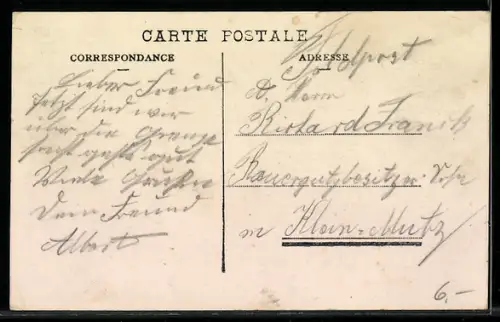 CARTE POSTALE
CORRESPONDANCE
Lieber Freund
Jetzt sind wir
über die Grenze
geht gut
Viele Grüße
Dein Freund
Albert
ADRESSE
Feldpost
Herrn
Richard Franck
Bauergutsbesitzer Sohn
in Klein-Mutz
6.-